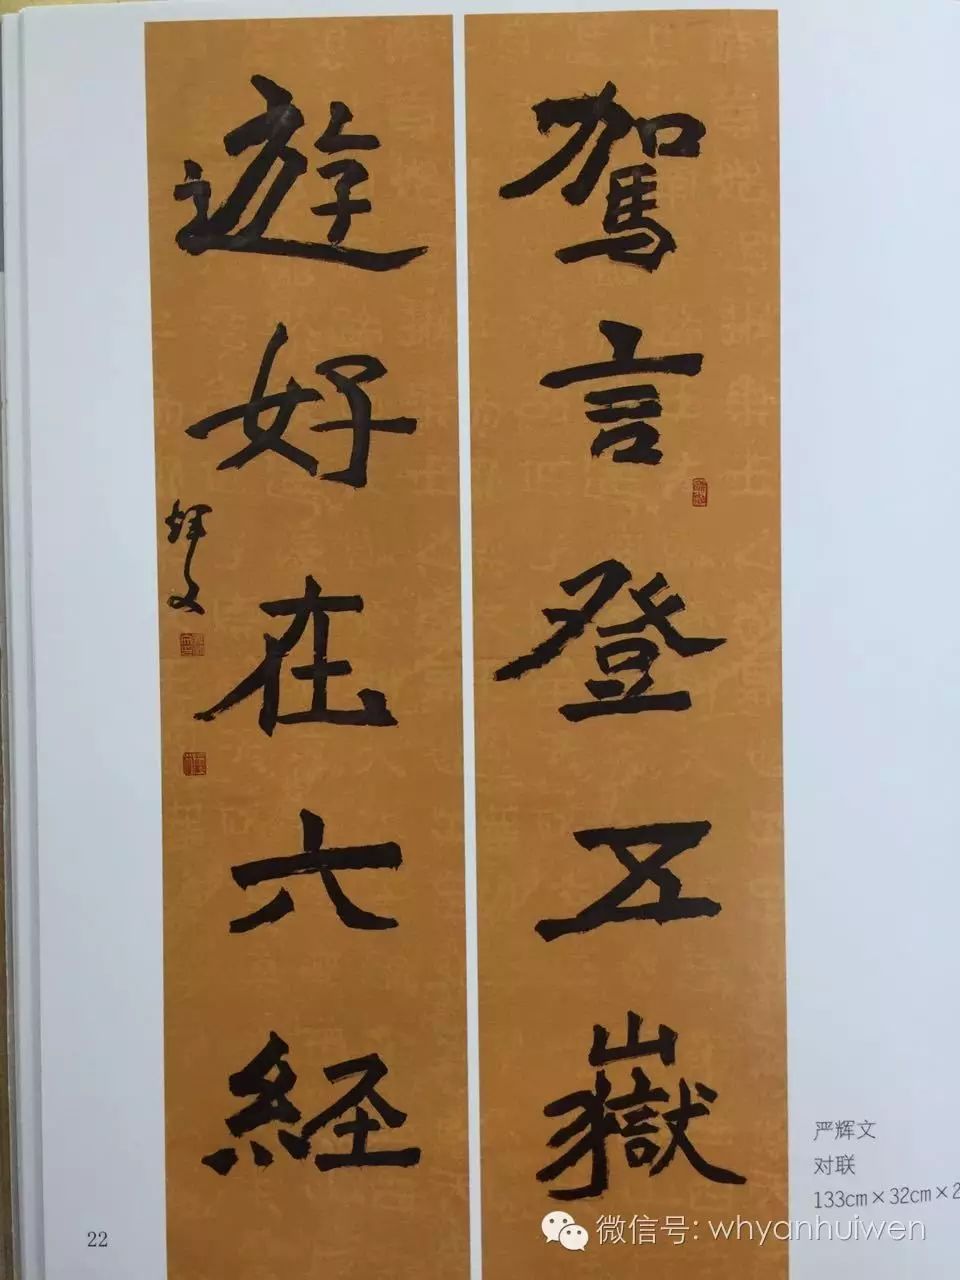 駕言登五嶽
遊好在六経
輝文
严辉文
对联
133cm×32cm×2
22
微信号: whyanhuiwen